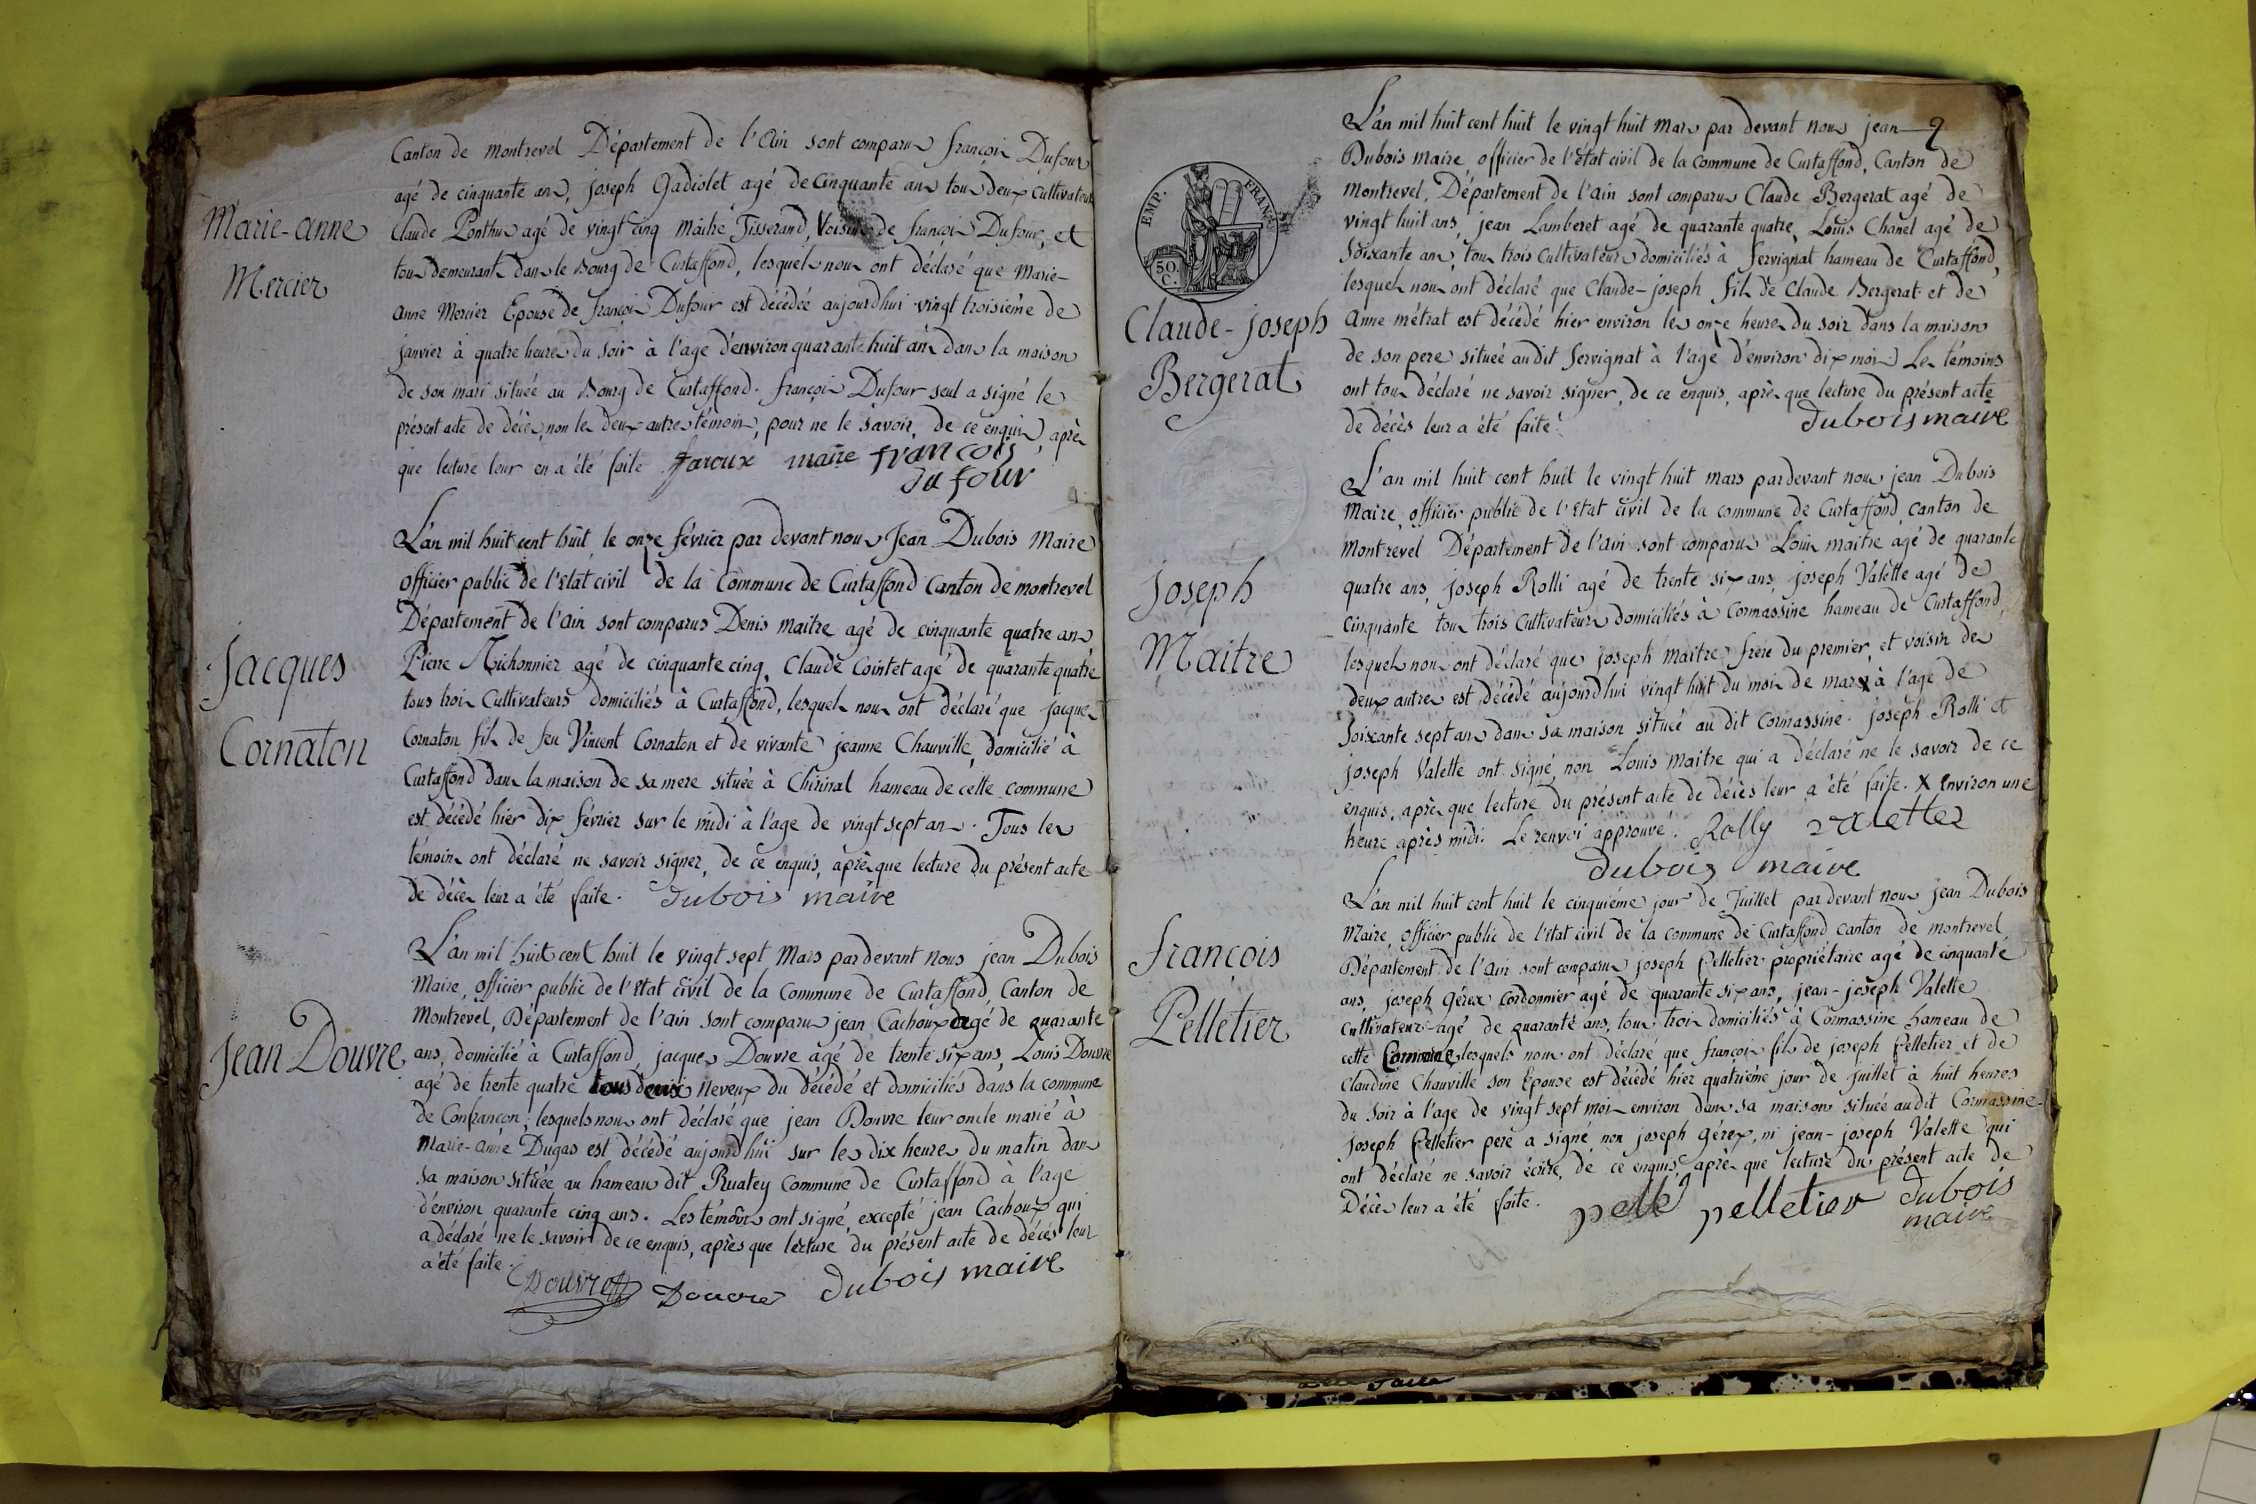 Canton de montrevel Département de l'ain sont comparus françois Dufour
agé de cinquante ans, joseph Gadiolet agé de cinquante ans tous deux cultivateurs
Marie-anne
Mercier
Claude Ponthus agé de vingt cinq maitre Tisserand, Voisins de françois Dufour, et
tous demeurants dans le Bourg de Curtaffond, lesquels nous ont déclaré que marie-
anne Mercier Epouse de françois Dufour est décédée aujourdhui vingt troisieme de
janvier à quatre heures du soir à l'age d'environ quarante huit ans dans la maison
de son mari située au Bourg de Curtaffond. françois Dufour seul a signé le
présent acte de décès, non les deux autres témoins, pour ne le savoir, de ce enquis, après
que lecture leur en a été faite faroux maire françois
du four
L'an mil huit cent huit, le onze février par devant nous Jean Dubois Maire
officier public de l'Etat civil de la Commune de Curtaffond Canton de montrevel
Département de l'ain sont comparus Denis maitre agé de cinquante quatre ans
Jacques
Cornaton
Pierre Michonnier agé de cinquante cinq, Claude Cointet agé de quarante quatre
tous trois Cultivateurs domiciliés à Curtaffond, lesquels nous ont déclaré que jacques
Cornaton fils de feu Vincent Cornaton et de vivante jeanne Chauville, domicilié à
Curtaffond dans la maison de sa mere située à Chirinal hameau de cette commune
est décédé hier dix février sur le midi à l'age de vingt sept ans. Tous les
témoins ont déclaré ne savoir signer, de ce enquis, après que lecture du présent acte
de décès leur a été faite. Dubois maire
L'an mil huit cent huit le vingt sept Mars pardevant nous jean Dubois
Maire, officier public de l'Etat civil de la Commune de Curtaffond, Canton de
Montrevel, Département de l'ain sont comparus jean Cachoux agé de quarante
Jean Douvre
ans, domicilié à Curtaffond, jacques Douvre agé de trente six ans, Louis Douvre
agé de trente quatre tous deux neveux du décédé et domiciliés dans la commune
de Confrançon; lesquels nous ont déclaré que jean Douvre leur oncle marié à
Marie-anne Dugas est décédé aujourd'hui sur les dix heures du matin dans
sa maison située au hameau dit Ruatey Commune de Curtaffond à l'age
d'environ quarante cinq ans. Les témoins ont signé, excepté jean Cachoux qui
a déclaré ne le savoir de ce enquis, après que lecture du présent acte de décès leur
a été faite.
Douvre Douvre Dubois maire
2
L'an mil huit cent huit le vingt huit mars par devant nous jean
Dubois maire officier de l'état civil de la commune de Curtaffond, Canton de
montrevel, Département de l'ain sont comparus Claude Bergerat agé de
vingt huit ans, jean Lamberet agé de quarante quatre, Louis Chanel agé de
Soixante ans, tous trois Cultivateurs domiciliés à servignat hameau de Curtaffond,
EMP. FRANÇ.
50.
C.
lesquels nous ont déclaré que Claude-joseph fils de Claude Bergerat et de
Claude-joseph
Bergerat
anne métrat est décédé hier environ les onze heures du soir dans la maison
de son pere située audit servignat à l'age d'environ dix mois Les témoins
ont tous déclaré ne savoir signer, de ce enquis, après que lecture du présent acte
de décès leur a été faite.
Dubois maire
L'an mil huit cent huit le vingt huit mars pardevant nous jean Dubois
Maire, officier public de l'Etat civil de la commune de Curtaffond, canton de
montrevel Département de l'ain sont comparus Louis maitre agé de quarante
Joseph
Maitre
quatre ans, joseph Rolli agé de trente six ans, joseph Valette agé de
cinquante tous trois Cultivateurs domiciliés à Cormassine hameau de Curtaffond,
lesquels nous ont déclaré que joseph maitre frere du premier, et voisin des
deux autres est décédé aujourdhui vingt huit du mois de mars x à l'age de
Soixante sept ans dans sa maison située au dit Cormassine. joseph Rolli et
joseph Valette ont signé, non Louis maitre qui a déclaré ne le savoir de ce
enquis, après que lecture du présent acte de décès leur a été faite. x environ une
heure après midi. Le renvoi approuvé. Rolly valettez
Dubois maire
L'an mil huit cent huit le cinquiéme jour de Juillet pardevant nous jean Dubois
Maire, officier public de l'état civil de la commune de Curtaffond canton de montrevel,
françois
Pelletier
Département de l'ain sont comparus joseph Pelletier propriétaire agé de cinquante
ans, joseph Gérex Cordonnier agé de quarante six ans, jean-joseph Valette
cultivateur agé de quarante ans, tous trois domiciliés à Cormassine hameau de
cette Commune, lesquels nous ont déclaré que françois fils de joseph Pelletier et de
Claudine Chauville son Epouse est décédé hier quatriéme jour de juillet à huit heures
du soir à l'age de vingt sept mois environ dans sa maison située audit Cormassine.
joseph Pelletier pere a signé non joseph Gérex, ni jean-joseph Valette qui
ont déclaré ne savoir écrire, de ce enquis, après que lecture du présent acte de
Décès leur a été faite. pelle pelletier Dubois
maire